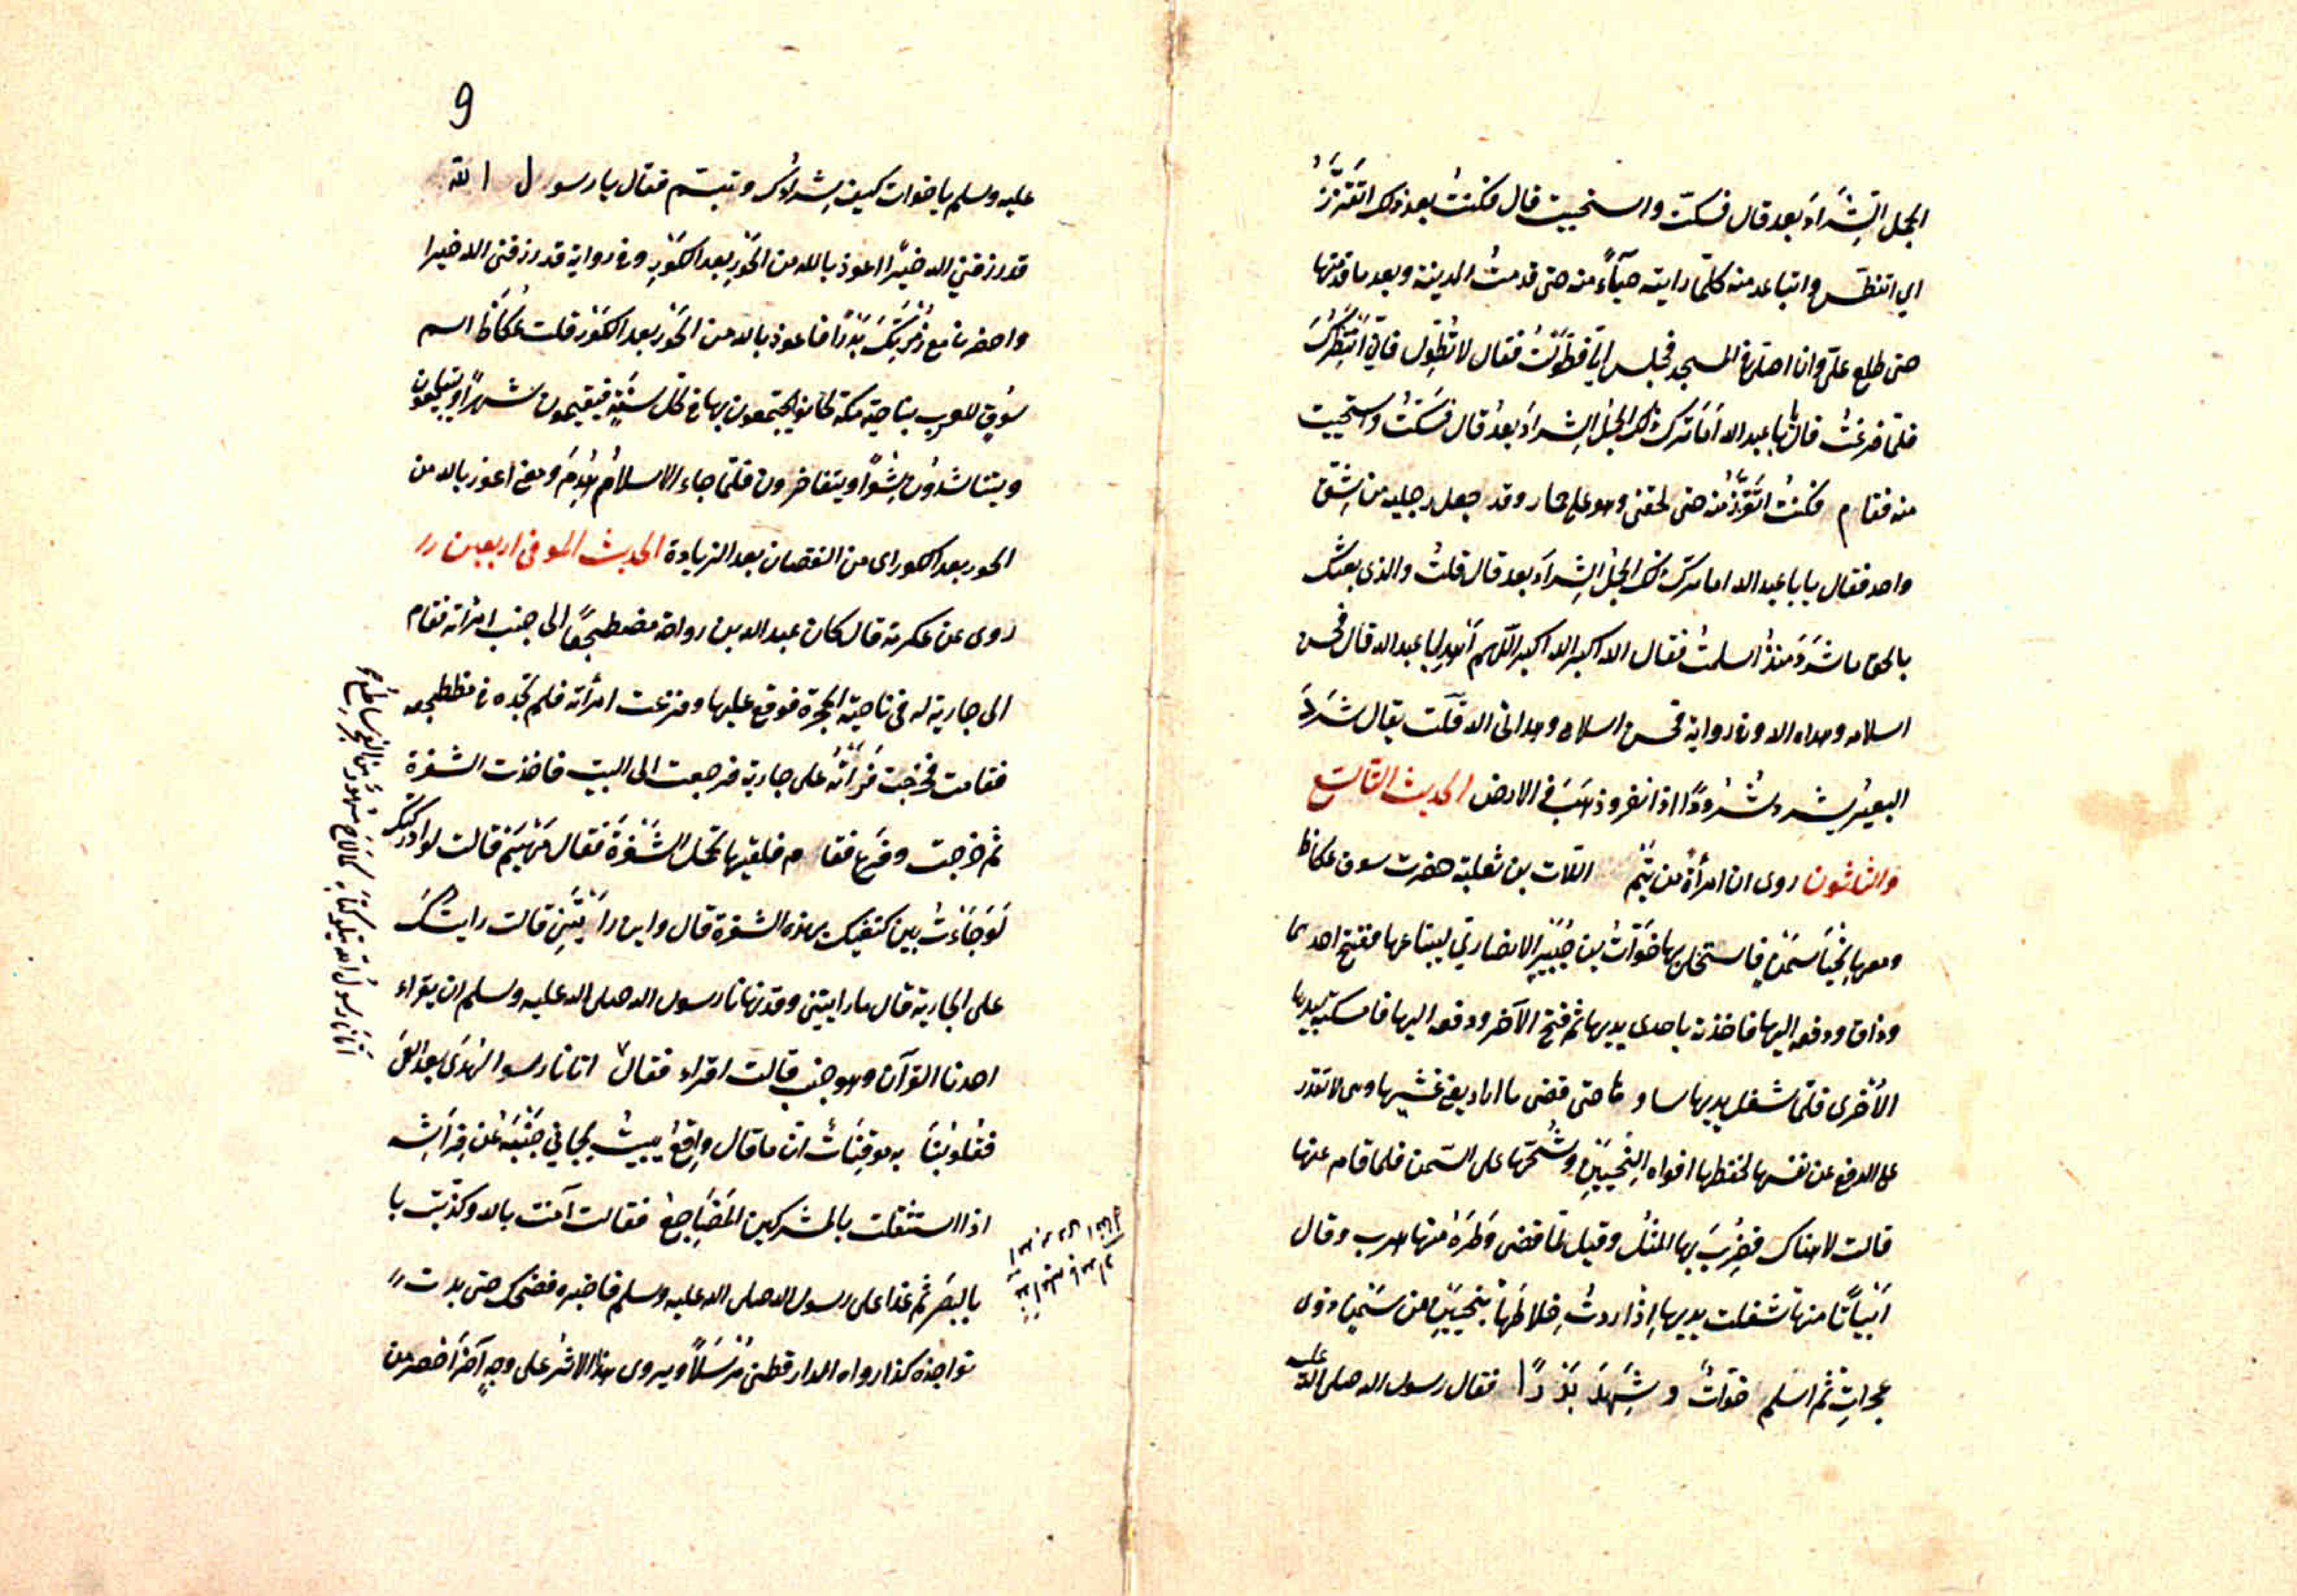 الجمل الشراد بعد قال فسكتّ واستحييت قال فكنتُ بعد ذلك اتقزّز
اي اتنطّس واتباعد منه كلّما رايته حيآءً منه حتى قدمتُ المدينة وبعد ما قدمتها
حتى طلع علىّ وانا اصلّى فى المسجد فجلس الىّ فطوّلتُ فقال لا تطوّل فانّي انتظرك
فلمّا فرغتُ قال يا با عبد الله اَمَا ترك ذلك الجمل الشراد بعدُ قال فسكتّ واستحييت
منه فقام فكنتُ اتقزّز منه حتى لحقنى وهو على حمار وقد جعل رجليه من شقّ
واحد فقال يا با عبد الله اما ترك ذلك الجمل الشراد بعد قال قلتُ والذى بعثك
بالحق ما شرد منذ اسلمتُ فقال الله اكبر الله اكبر اللّهم اهد ابا عبد الله قال فحسن
اسلامه وهداه الله وفى رواية فحسن اسلامى وهدانى الله قلت يقال شرد
البعير يشرد شرودًا اذا نفر وذهب فى الارض الحديث التاسع
والثلثون روى ان امرأةً من تيم اللّات بن ثعلبة حضرت سوق عكاظ
ومعها نحيا سمن فاستخلى بها خوّات بن جبير الانصاري ليبتاعهما منها ففتح احدهما
وذاق ودفعه اليها فاخذته باحدى يديها ثم فتح الآخر ودفعه اليها فامسكته بيدها
الاُخرى فلمّا شغل يديها ساورها حتى قضى ما اراد يعنى غشيها وهى لا تقدر
على الدفع عن نفسها لحفظها افواه النحيين وشحّها على السّمن فلما قام عنها
قالت لا هناك فضرب بها المثل وقيل لمّا قضى وطره منها هرب وقال
ابياتًا منها شغلت يديها اذ اردتُ خلاطها بنحيين من سمن ذوى
عجرات ثم اسلم خوّات وشهد بدرًا فقال رسول الله صلى الله
عليه
9
عليه وسلم يا خوات كيف شرادك وتبسّم فقال يا رسول الله
قد رزقني الله خيرًا اعوذ بالله من الحور بعد الكور وفى رواية قد رزقنى الله خيرا
فاعوذ بالله من الحور بعد الكور قلت عكاظ اسم
سوق للعرب بناحية مكة كانوا يجتمعون بها فى كل سنة فيقيمون شهرًا ويتبايعون
ويتناشدون شعرًا ويتفاخرون فلمّا جاء الاسلام هدم ومعنى اعوذ بالله من
الحور بعد الكور اى من النقصان بعد الزيادة الحديث الموفى اربعين
روى عن عكرمة قال كان عبد الله بن رواحة مضطجعًا الى جنب امرأته فقام
الى جارية له فى ناحية الحجرة فوقع عليها وفزعت امرأته فلم تجده فى مضطجعه
فقامت فخرجت فراته على جارية فرجعت الى البيت فاخذت الشفرة
ثم خرجت وفرغ فقام فلقيها تحمل الشفرة فقال مهيم قالت لو ادركتك
لوجاءتُ بين كتفيك بهذه الشفرة قال واين رأيتني قالت رايتك
على الجارية قال ما رايتنى وقد نهانا رسول الله صلى الله عليه وسلم ان يقراء
احدنا القرآن وهو جنب قالت اقراء فقال اتانا رسول الهدى بعد العمى
فقلوبنا به موقنات ان ما قال واقع يبيت يجافي جنبه عن فراشه
اذا استثقلت بالمشركين المضاجع فقالت آمنت بالله وكذّبت با
بالبصر ثم غدا على رسول الله صلى الله عليه وسلم فاخبره فضحك حتى بدت
نواجذه كذا رواه الدارقطنى مرسلًا ويروى هذا الاثر على وجهٍ آخر اخصر من
اتانا رسول الله يتلو كتابه كما لاح مشهور من الفجر ساطع